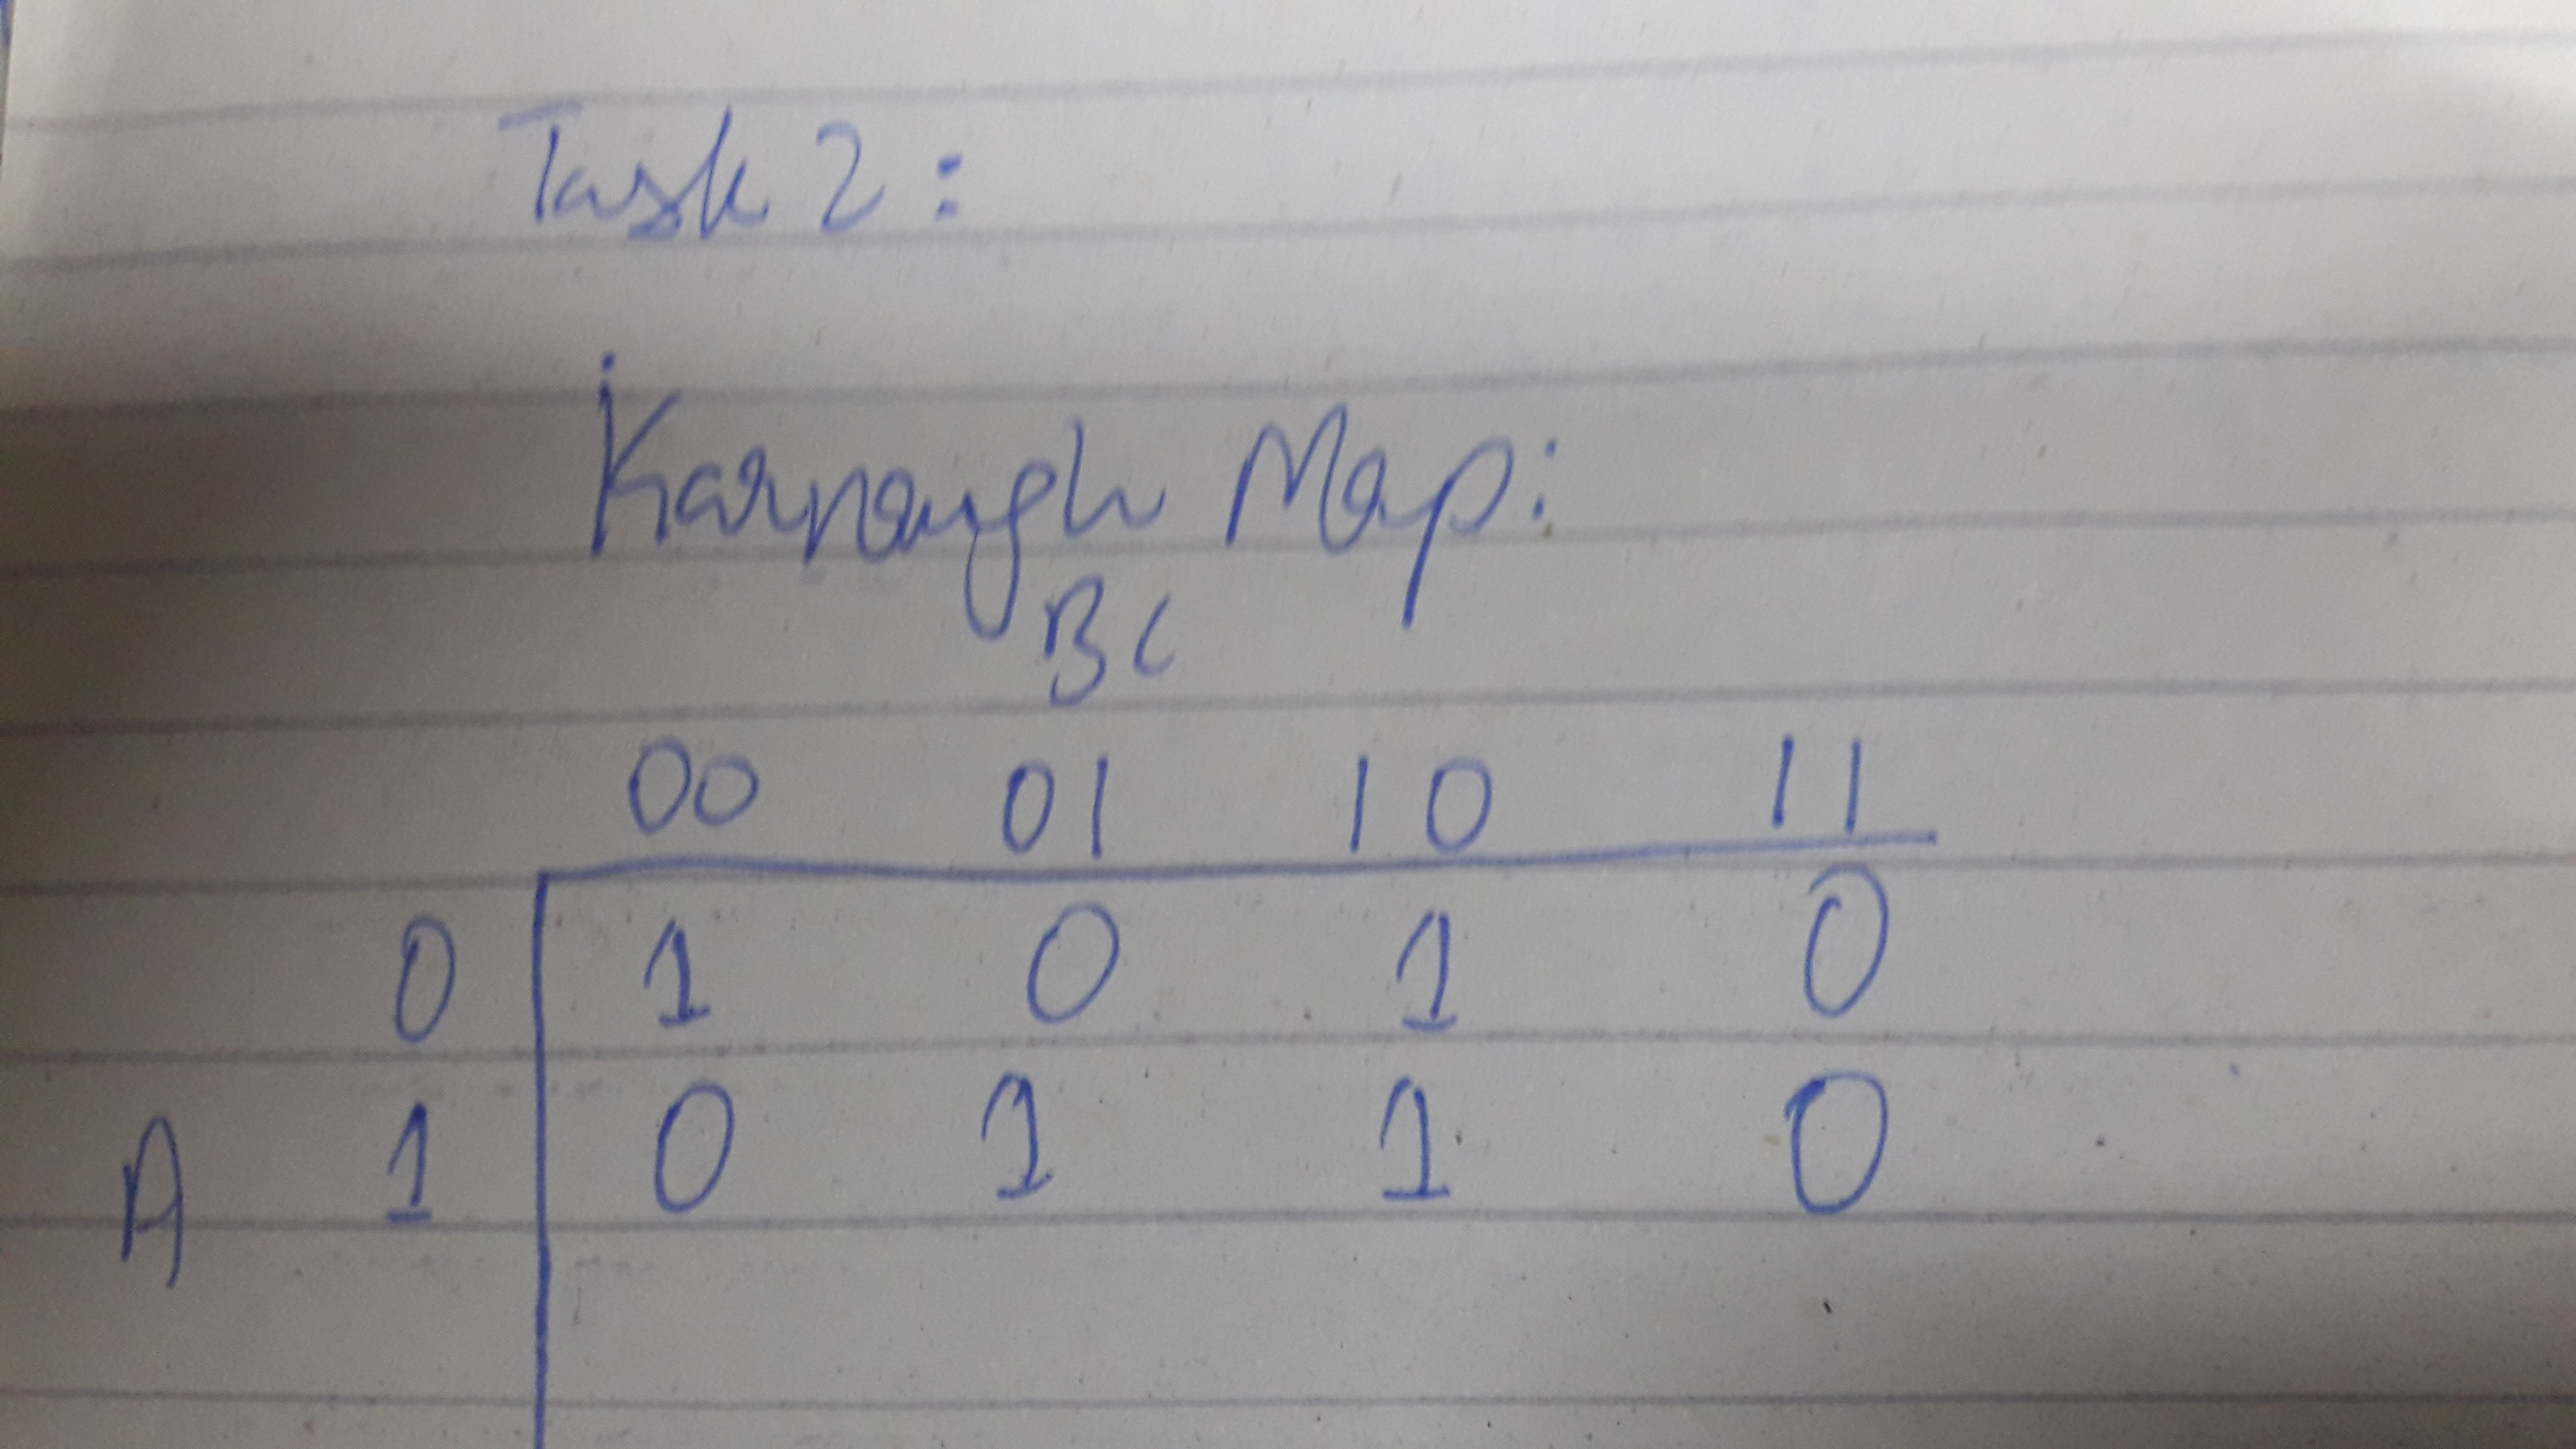 Task 2:
Karnaugh Map:
BC
00 01 10 11
0 1 0 1 0
A 1 0 1 1 0